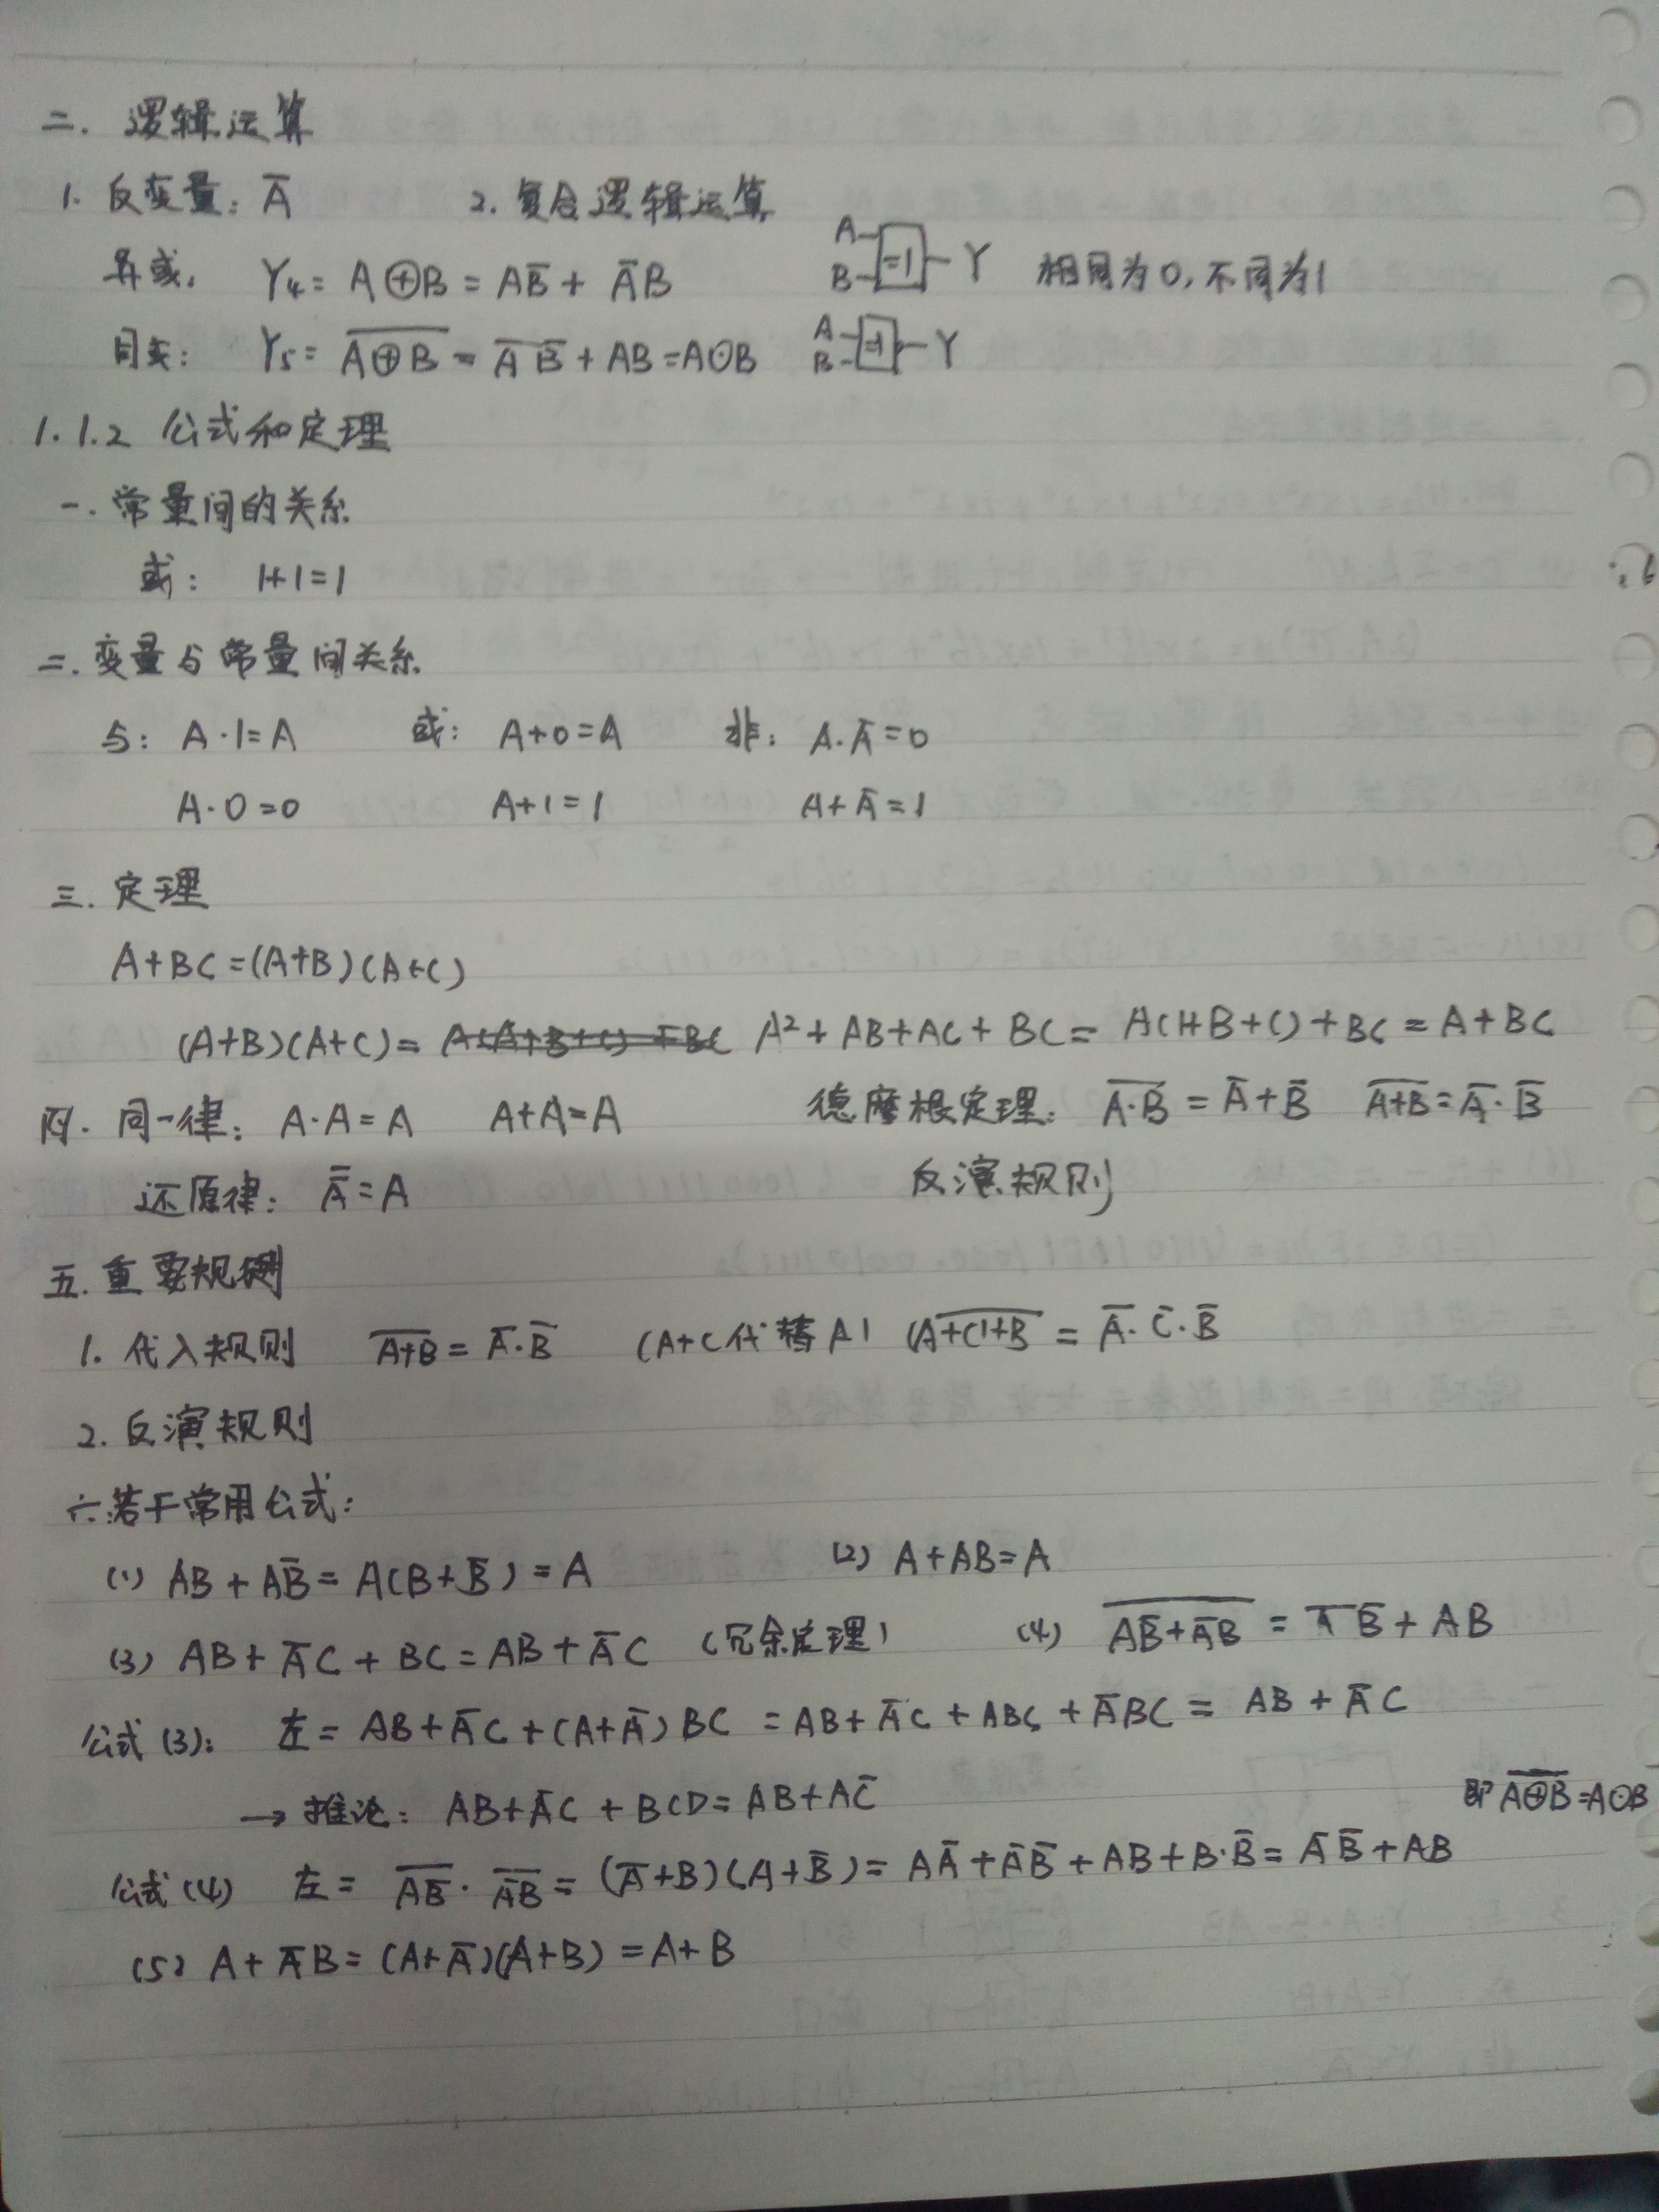 二. 逻辑运算
1. 反变量: A̅ 2. 复合逻辑运算
异或: Y₄= A⊕B = AB̅ + A̅B A B =1 Y 相同为0, 不同为1
同或: Y₅= \overline{A⊕B} = A̅ B̅ + AB = A⊙B A B =1 Y
1.1.2 公式和定理
一. 常量间的关系
或: 1+1=1
二. 变量与常量间关系
与: A·1=A 或: A+0=A 非: A·A̅=0
A·0=0 A+1=1 A+A̅=1
三. 定理
A+BC=(A+B)(A+C)
(A+B)(A+C)= A²+AB+AC+BC= A(1+B+C)+BC = A+BC
四. 同一律: A·A=A A+A=A 德摩根定理: \overline{A·B} = A̅+B̅ \overline{A+B}=A̅·B̅
还原律: A̿=A 反演规则
五. 重要规则
1. 代入规则 \overline{A+B}= A̅·B̅ (A+C代替A) \overline{(A+C)+B} = A̅·C̅·B̅
2. 反演规则
六.若干常用公式:
(1) AB+AB̅= A(B+B̅)=A (2) A+AB=A
(3) AB+A̅C+BC=AB+A̅C (冗余定理) (4) \overline{AB̅+A̅B} = A̅ B̅+AB
公式(3): 左= AB+A̅C+(A+A̅)BC =AB+A̅C+ABC+A̅BC= AB+A̅C
→推论: AB+A̅C+BCD=AB+AC̅ 即\overline{A⊕B}=A⊙B
公式(4) 左= \overline{AB̅}·\overline{A̅B}=(A̅+B)(A+B̅)= AA̅+A̅B̅+AB+B·B̅= A̅B̅+AB
(5) A+A̅B=(A+A̅)(A+B)=A+B